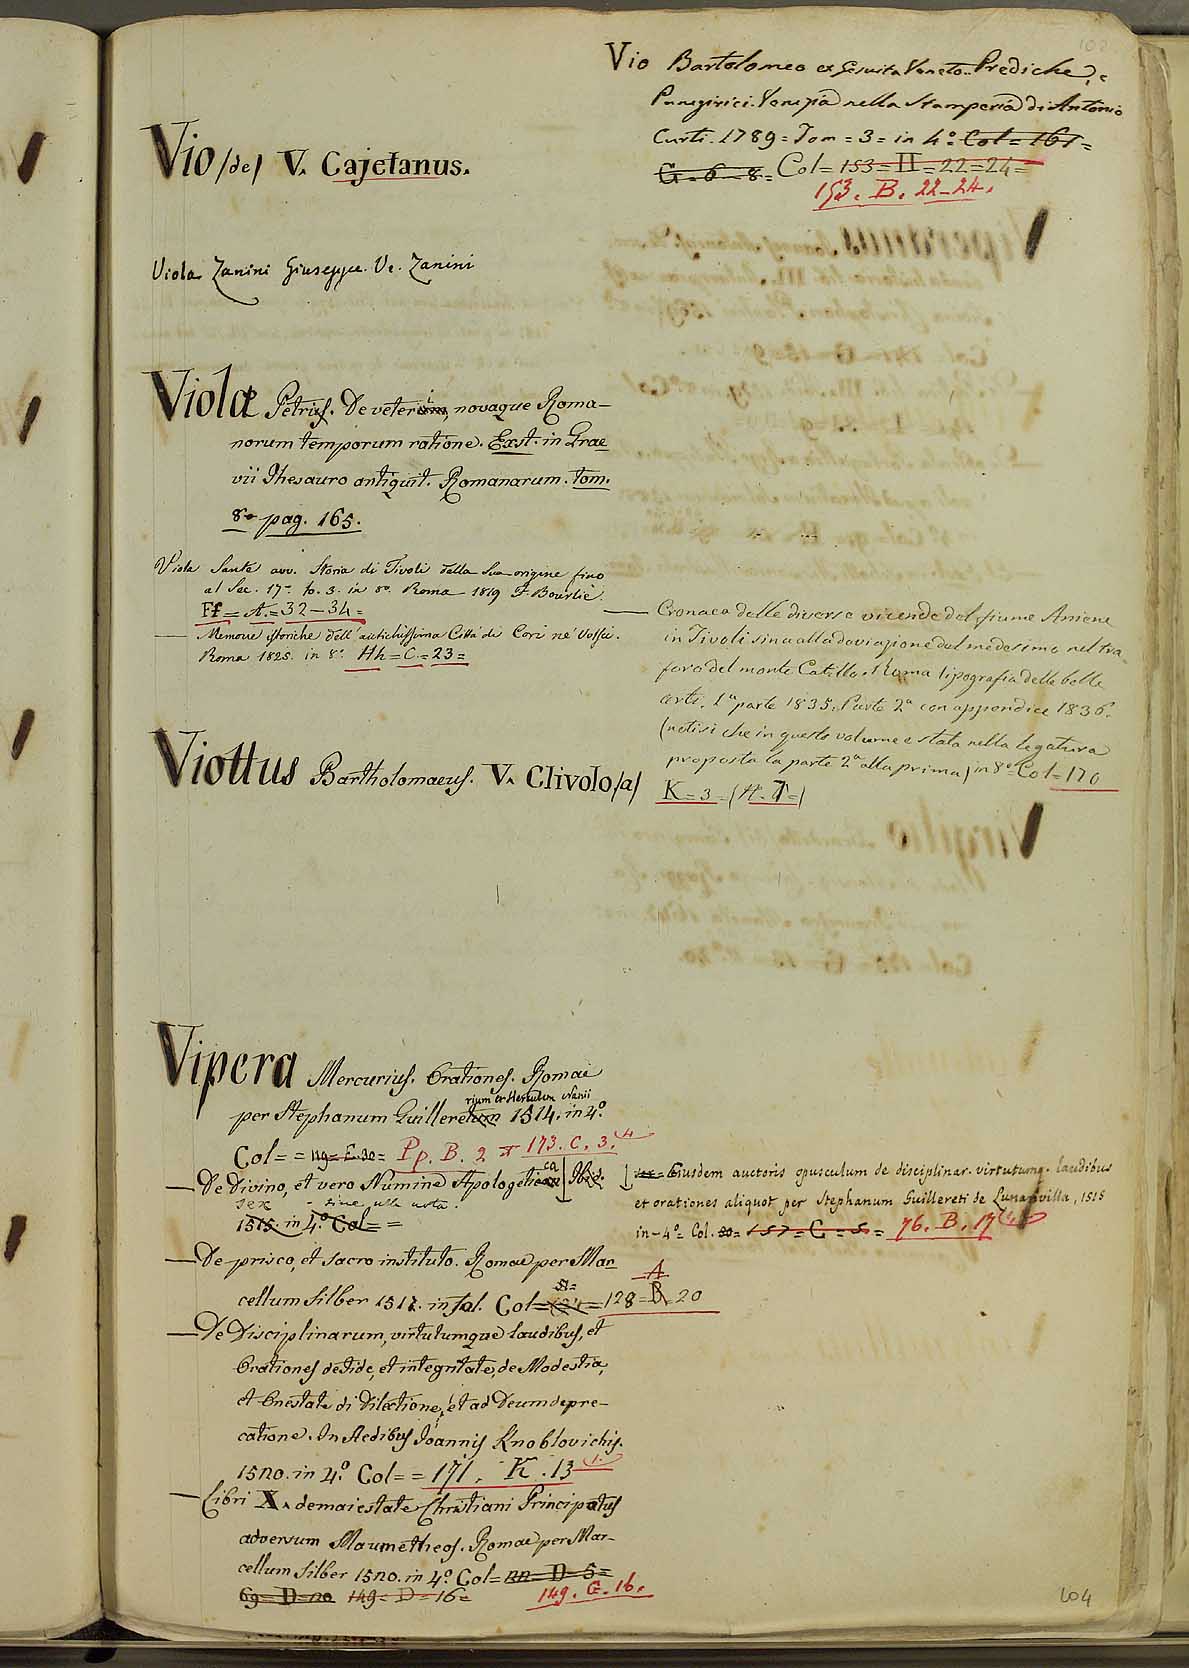 Vio /de/ V. Cajetanus.
Viola Zanini Giuseppe. Ve. Zanini
Viola Petrus. De veteri, novaque Roma-
norum temporum ratione. Exst. in Grae
vii Thesauro antiquit. Romanarum. tom.
8. pag. 165.
Viola Sante avv. Storia di Tivoli dalla sua origine fino
al Sec. 17. to. 3. in 8o. Roma 1819 F. Bourlié.
Ff = A. = 32 - 34 =
— Memorie storiche dell'antichissima Città di Cori ne' Volsci.
Roma 1825. in 8o. Hh = C = 23 =
Viottus Bartholomaeus. V. Clivolo /a/
Vipera Mercurius. Orationes. Romae
rium et Herculem Nanii
per Stephanum Guilleretum 1514. in 4o.
Col = = 119 = E. 30 = Pp. B. 2 173. C. 3. 4
— De Divino, et vero Numine Apologeticon ca Ibid.
sex sine ulla nota.
1515. in 4o. Col = =
— De prisco, et sacro instituto. Romae per Mar
cellum Silber 1517. in fol. Col = 128 = B. 20
A
— De Disciplinarum, virtutumque laudibus, et
Orationes de Fide, et integritate, de Modestia,
et Onestate di Dilectione, et ad Deum depre-
catione. In Aedibus Joannis Knoblovichis.
1520. in 4o. Col = = 171. K. 13 1.
— Libri X. de maiestate Christiani Principatus
adversum Maumetheos. Romae per Mar-
cellum Silber 1520. in 4o. Col = 22 = D = 5 =
69 = D = 20 149 = D = 16 = 149. G. 16.
Vio Bartolomeo ex Gesuita Veneto. Prediche, e
Panegirici. Venezia nella Stamperia di Antonio
Curti. 1789 = Tom = 3 = in 4o. Col = 161 =
G = 6 - 8 = Col = 153 = H = 22 = 24 =
153. B. 22 - 24.
— Cronaca delle diverse vicende del fiume Aniene
in Tivoli sino alla deviazione del medesimo nel tra
foro del monte Catillo. Roma tipografia delle belle
arti. 1a parte 1835. Parte 2a con appendice 1836.
(notisi che in questo volume è stata nella legatura
proposta la parte 2a alla prima) in 8o. Col = 170
K = 3 = (H. T =)
Eiusdem auctoris opusculum de disciplinar. virtutumq. laudibus
et orationes aliquot per Stephanum Guillereti de Lunarivilla, 1515
in - 4o = Col. 20 = 157 = C = 5 = 76. B. 17
104